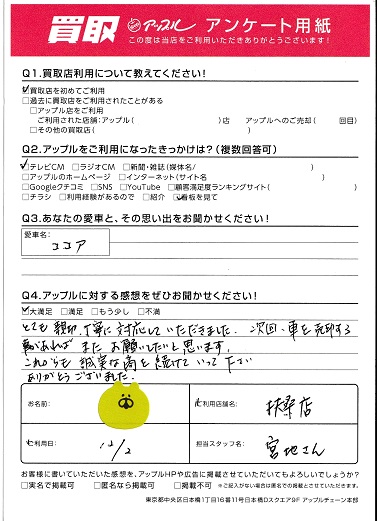 買取 アップル アンケート用紙
この度は当店をご利用いただきありがとうございます!
Q1.買取店利用について教えてください!
☑買取店を初めてご利用
□過去に買取店をご利用されたことがある
□アップル店をご利用
ご利用された店舗:アップル( )店 アップルへのご売却( 回目)
□その他の買取店( )
Q2.アップルをご利用になったきっかけは?(複数回答可)
☑テレビCM □ラジオCM □新聞・雑誌(媒体名/ )
□アップルのホームページ □インターネット(サイト名 )
□Googleクチコミ □SNS □YouTube □顧客満足度ランキングサイト( )
□チラシ □利用経験があるので □紹介 ☑看板を見て
Q3.あなたの愛車と、その思い出をお聞かせください!
愛車名:
ココア
Q4.アップルに対する感想をぜひお聞かせください!
☑大満足 □満足 □もう少し □不満
とても親切、丁寧に対応していただきました。次回、車を売却する
事があれば またお願いしたいと思います。
これからも 誠実な商を続けていって下さい
ありがとうございました。
お名前:
ご利用店舗名:
扶桑店
ご利用日:
12/2
担当スタッフ名:
宮地さん
お客様に書いていただいた感想を、アップルHPや広告に掲載させていただいてもよろしいでしょうか?
□実名で掲載可 □匿名なら掲載可 □掲載不可 ※ご記入がない場合は匿名での掲載とさせていただきます。
東京都中央区日本橋1丁目16番11号日本橋Dスクエア9F アップルチェーン本部